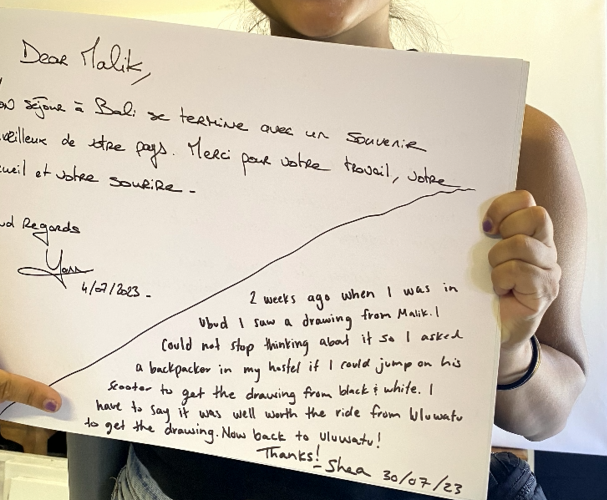 Dear Malik,
séjour à Bali se termine avec un souvenir
veilleux de votre pays. Merci pour votre travail, votre
ueil et votre sourire -
Regards
Yann
4/07/2023 -
2 weeks ago when I was in
Ubud I saw a drawing from Malik. I
Could not stop thinking about it so I asked
a backpacker in my hostel if I could jump on his
scooter to get the drawing from black & white. I
have to say it was well worth the ride from Uluwatu
to get the drawing. Now back to Uluwatu!
Thanks! - Shaa 30/07/23